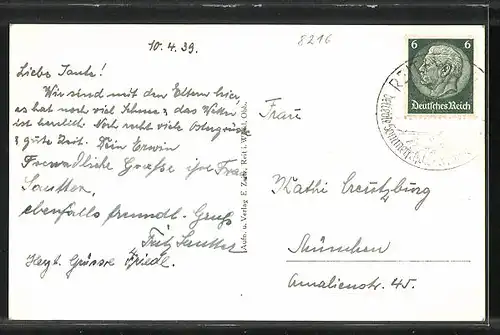 10. 4. 39.
8216
Liebe Tante!
Wir sind mit den Eltern hier,
es hat noch viel Schnee & das Wetter
ist herrlich. Noch recht viele Ostergrüsse
& gute Zeit. Dein Erwin
Freundliche Grüsse ihre Frau
Sautter,
ebenfalls freundl. Gruß
Fritz Sautter
Herzl. Grüsse Friedl.
Aufn. u. Verlag E.
6 6
Deutsches Reich
Frau
Kathi Creutzburg
München
Amalienstr. 45.